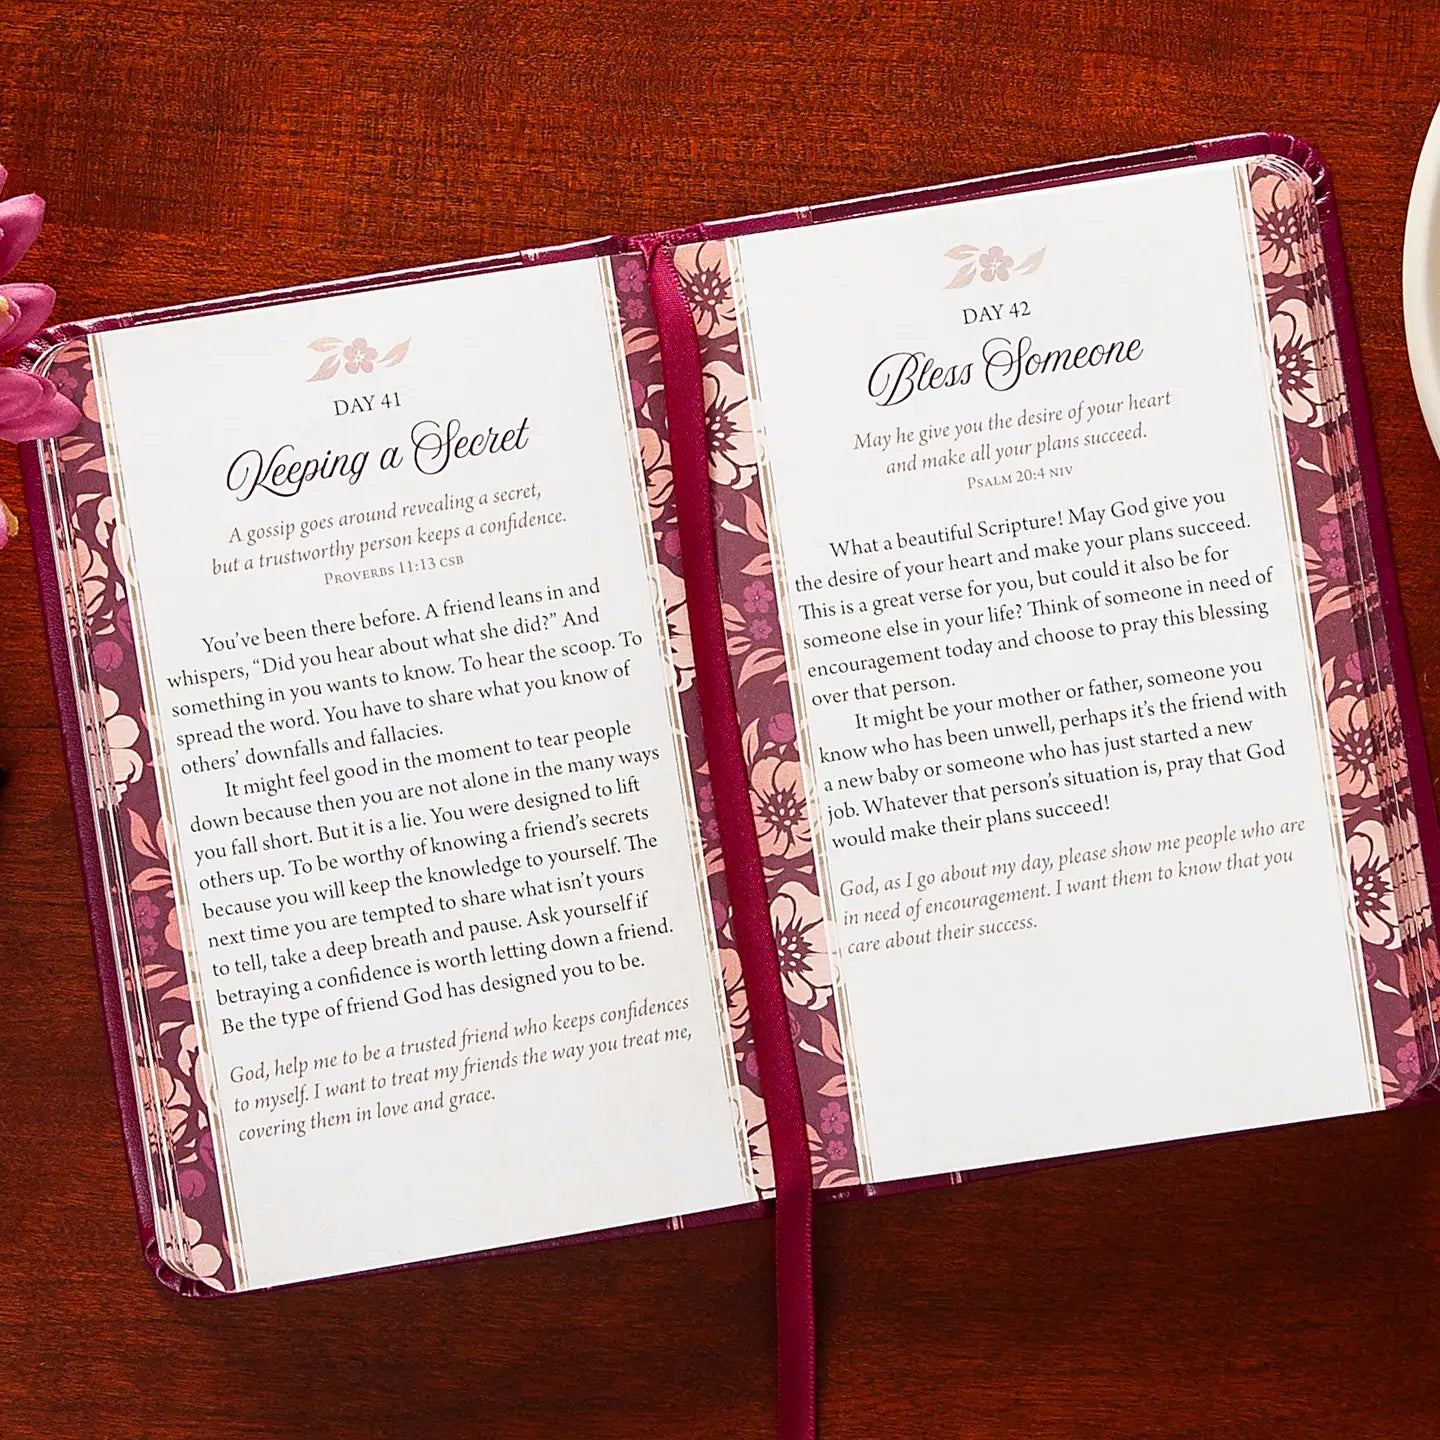 DAY 41
Keeping a Secret
A gossip goes around revealing a secret,
but a trustworthy person keeps a confidence.
PROVERBS 11:13 CSB
You've been there before. A friend leans in and
whispers, “Did you hear about what she did?” And
something in you wants to know. To hear the scoop. To
spread the word. You have to share what you know of
others' downfalls and fallacies.
It might feel good in the moment to tear people
down because then you are not alone in the many ways
you fall short. But it is a lie. You were designed to lift
others up. To be worthy of knowing a friend's secrets
because you will keep the knowledge to yourself. The
next time you are tempted to share what isn't yours
to tell, take a deep breath and pause. Ask yourself if
betraying a confidence is worth letting down a friend.
Be the type of friend God has designed you to be.
God, help me to be a trusted friend who keeps confidences
to myself. I want to treat my friends the way you treat me,
covering them in love and grace.
DAY 42
Bless Someone
May he give you the desire of your heart
and make all your plans succeed.
PSALM 20:4 NIV
What a beautiful Scripture! May God give you
the desire of your heart and make your plans succeed.
This is a great verse for you, but could it also be for
someone else in your life? Think of someone in need of
encouragement today and choose to pray this blessing
over that person.
It might be your mother or father, someone you
know who has been unwell, perhaps it's the friend with
a new baby or someone who has just started a new
job. Whatever that person's situation is, pray that God
would make their plans succeed!
God, as I go about my day, please show me people who are
in need of encouragement. I want them to know that you
care about their success.